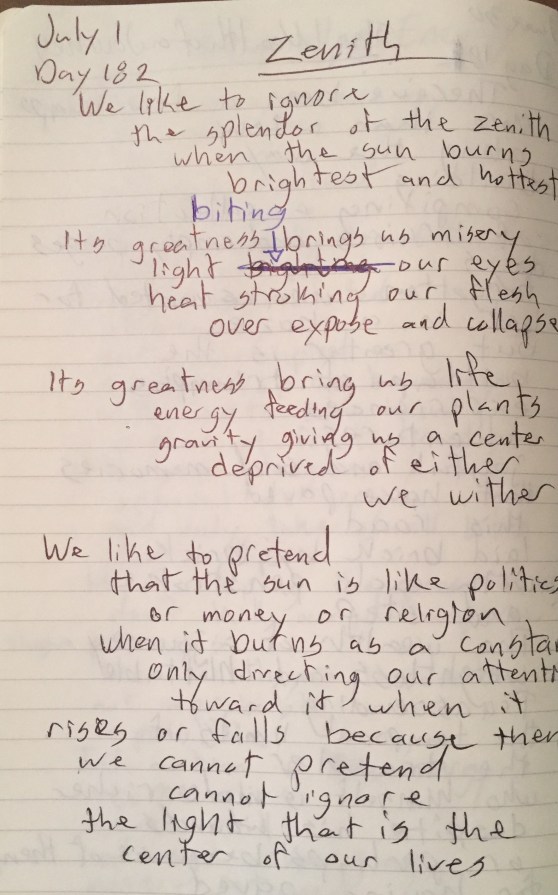 July 1
Zenith
Day 182
We like to ignore
the splendor of the zenith
when the sun burns
brightest and hottest
biting
Its greatness brings us misery
light our eyes
heat stroking our flesh
over expose and collapse
Its greatness bring us life
energy feeding our plants
gravity giving us a center
deprived of either
we wither
We like to pretend
that the sun is like politics
or money or religion
when it burns as a consta
only directing our attenti
toward it when it
rises or falls because then
we cannot pretend
cannot ignore
the light that is the
center of our lives